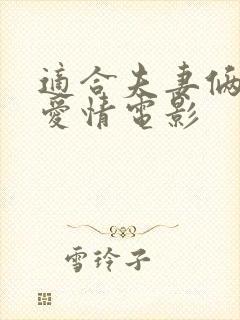 適合夫妻倆
愛情電影
雪玲子